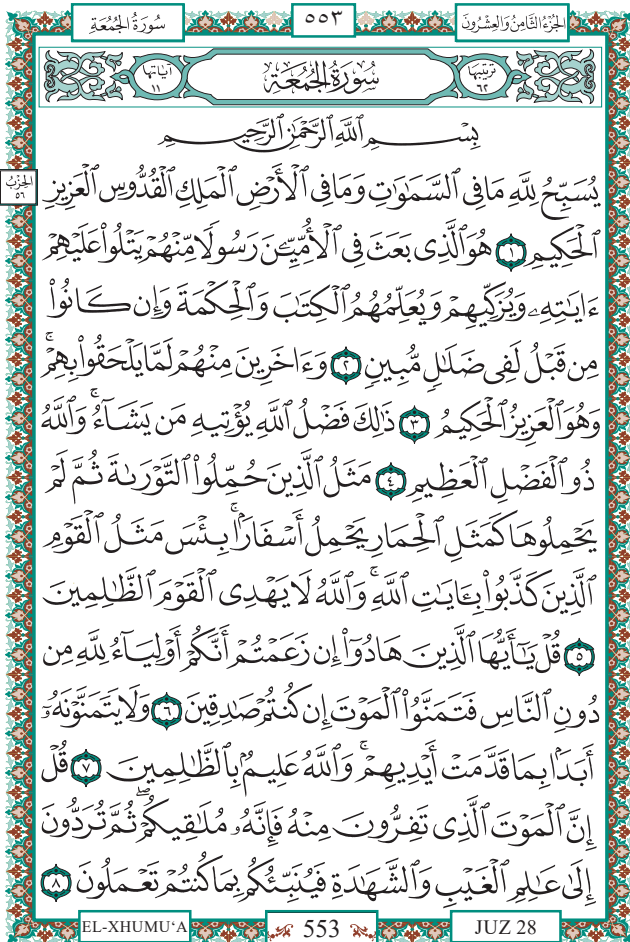 سُورَةُ الْجُمُعَةِ ٥٥٣ الجُزْءُ الثَّامِنُ وَالعِشْرُونَ
اٰيَاتها ١١ سُورَةُ الْجُمُعَةِ تَرتيبهَا ٦٢
بِسْمِ ٱللَّهِ ٱلرَّحْمَٰنِ ٱلرَّحِيمِ
الحِزْبُ ٥٦
يُسَبِّحُ لِلَّهِ مَا فِى ٱلسَّمَٰوَٰتِ وَمَا فِى ٱلْأَرْضِ ٱلْمَلِكِ ٱلْقُدُّوسِ ٱلْعَزِيزِ
ٱلْحَكِيمِ ١ هُوَ ٱلَّذِى بَعَثَ فِى ٱلْأُمِّيِّـۧنَ رَسُولًا مِّنْهُمْ يَتْلُوا۟ عَلَيْهِمْ
ءَايَٰتِهِۦ وَيُزَكِّيهِمْ وَيُعَلِّمُهُمُ ٱلْكِتَٰبَ وَٱلْحِكْمَةَ وَإِن كَانُوا۟
مِن قَبْلُ لَفِى ضَلَٰلٍ مُّبِينٍ ٢ وَءَاخَرِينَ مِنْهُمْ لَمَّا يَلْحَقُوا۟ بِهِمْ ۚ
وَهُوَ ٱلْعَزِيزُ ٱلْحَكِيمُ ٣ ذَٰلِكَ فَضْلُ ٱللَّهِ يُؤْتِيهِ مَن يَشَآءُ ۚ وَٱللَّهُ
ذُو ٱلْفَضْلِ ٱلْعَظِيمِ ٤ مَثَلُ ٱلَّذِينَ حُمِّلُوا۟ ٱلتَّوْرَىٰةَ ثُمَّ لَمْ
يَحْمِلُوهَا كَمَثَلِ ٱلْحِمَارِ يَحْمِلُ أَسْفَارًۢا ۚ بِئْسَ مَثَلُ ٱلْقَوْمِ
ٱلَّذِينَ كَذَّبُوا۟ بِـَٔايَٰتِ ٱللَّهِ ۚ وَٱللَّهُ لَا يَهْدِى ٱلْقَوْمَ ٱلظَّٰلِمِينَ
٥ قُلْ يَٰٓأَيُّهَا ٱلَّذِينَ هَادُوٓا۟ إِن زَعَمْتُمْ أَنَّكُمْ أَوْلِيَآءُ لِلَّهِ مِن
دُونِ ٱلنَّاسِ فَتَمَنَّوُا۟ ٱلْمَوْتَ إِن كُنتُمْ صَٰدِقِينَ ٦ وَلَا يَتَمَنَّوْنَهُۥٓ
أَبَدًۢا بِمَا قَدَّمَتْ أَيْدِيهِمْ ۚ وَٱللَّهُ عَلِيمٌۢ بِٱلظَّٰلِمِينَ ٧ قُلْ
إِنَّ ٱلْمَوْتَ ٱلَّذِى تَفِرُّونَ مِنْهُ فَإِنَّهُۥ مُلَٰقِيكُمْ ۖ ثُمَّ تُرَدُّونَ
إِلَىٰ عَٰلِمِ ٱلْغَيْبِ وَٱلشَّهَٰدَةِ فَيُنَبِّئُكُم بِمَا كُنتُمْ تَعْمَلُونَ ٨
EL-XHUMU‘A 553 JUZ 28